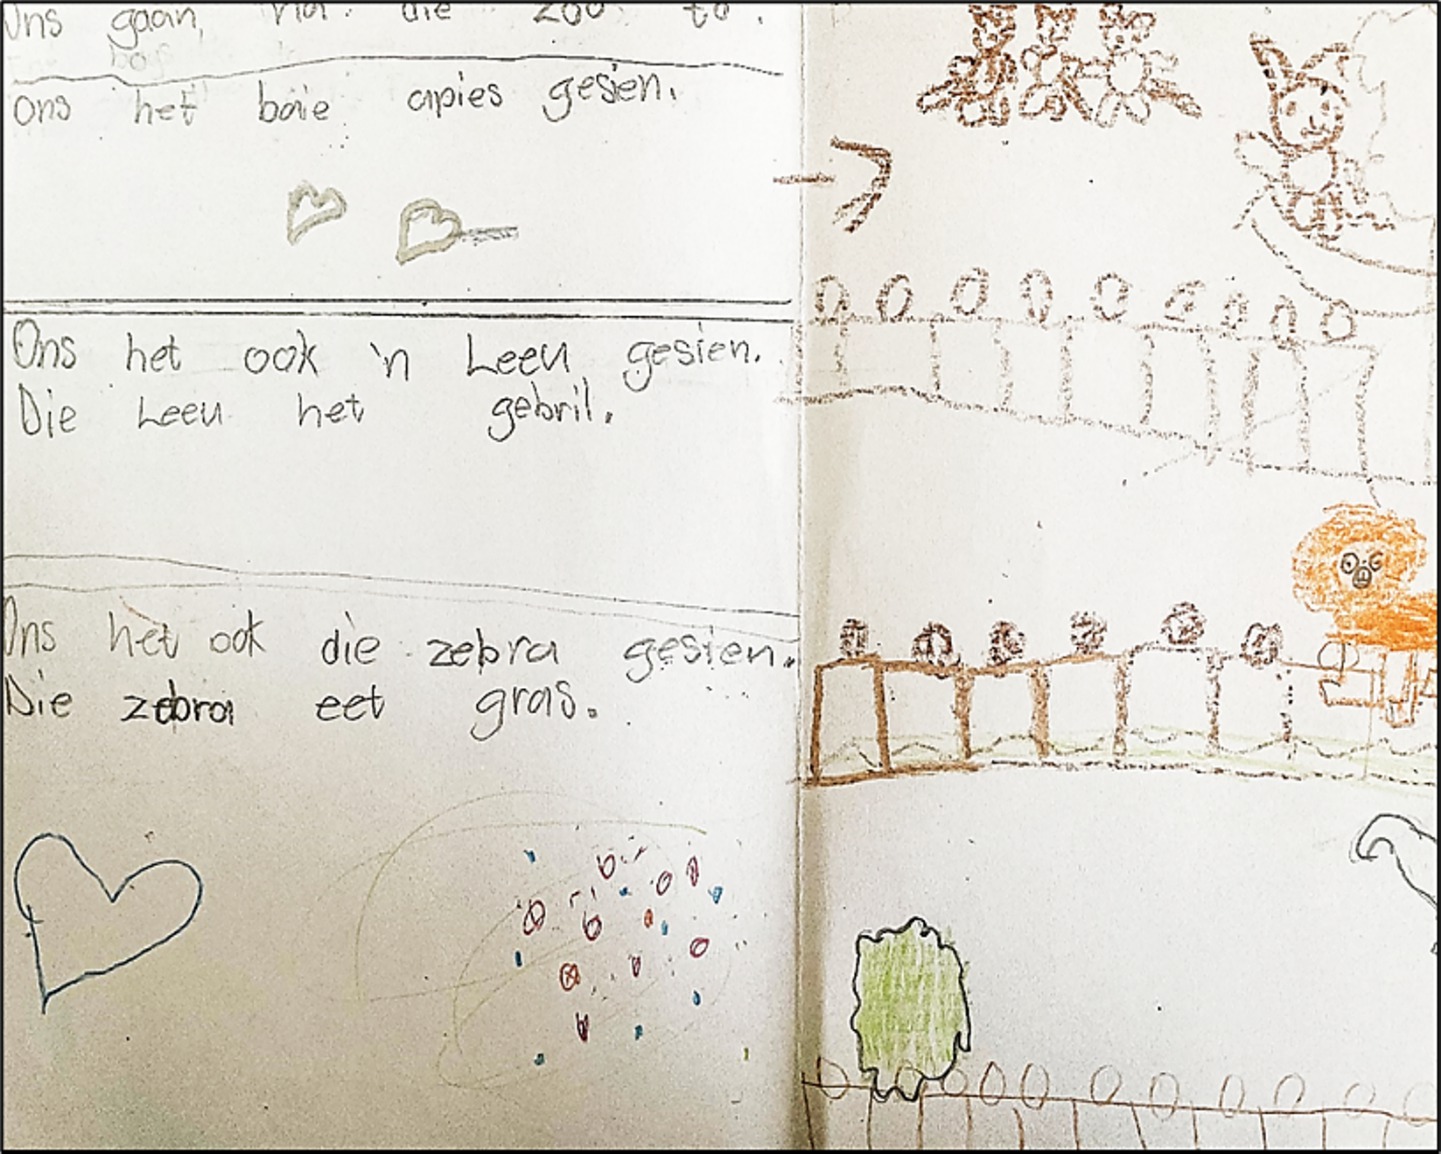 Ons gaan na die zoo to.
Ons het baie apies gesien.
Ons het ook 'n Leeu gesien.
Die Leeu het gebril.
Ons het ook die zebra gesien.
Die zebra eet gras.